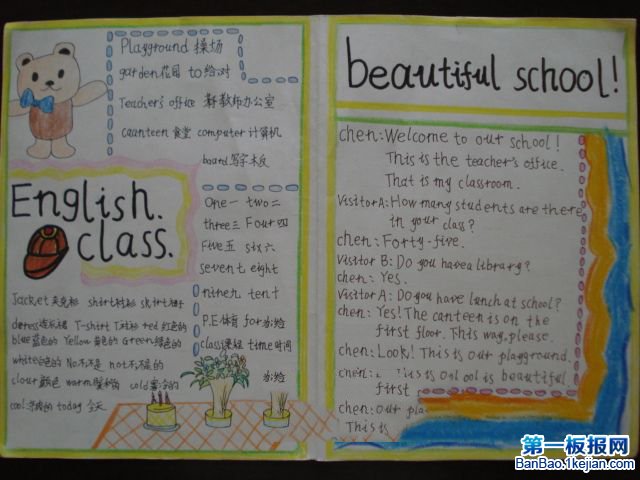 Playground 操场
garden花园 to给,对
Teacher's office 教师办公室
caanteen 食堂 computer 计算机
board写字木板
English.
class.
One一 two二
three三 Four四
Five五 six六
seven七 eight
nine九 ten十
P.E.体育 for
class课程 time时间
Jacket夹克衫 shirt衬衫 skirt
dress连衣裙 T-shirt T恤衫 red 红色的
blue蓝色的 Yellow黄色的 Green绿色的
white白色的 No不,不是 not不,不是的
clour颜色 warm暖和的 cold寒冷的
cool凉爽的 today 今天
beautiful school!
chen: Welcome to our school!
This is the teacher's office.
That is my classroom.
Visitor A: How many students are there
in your class?
chen: Forty-five.
Visitor B: Do you have a library?
chen: Yes.
Visitor A: Do you have lunch at school?
chen: Yes! The canteen is on the
first floor. This way, please.
chen: Look! This is our playground.
chen: is beautiful
first
chen: Our pla
This is
第一板报网
BanBao.1kejian.com